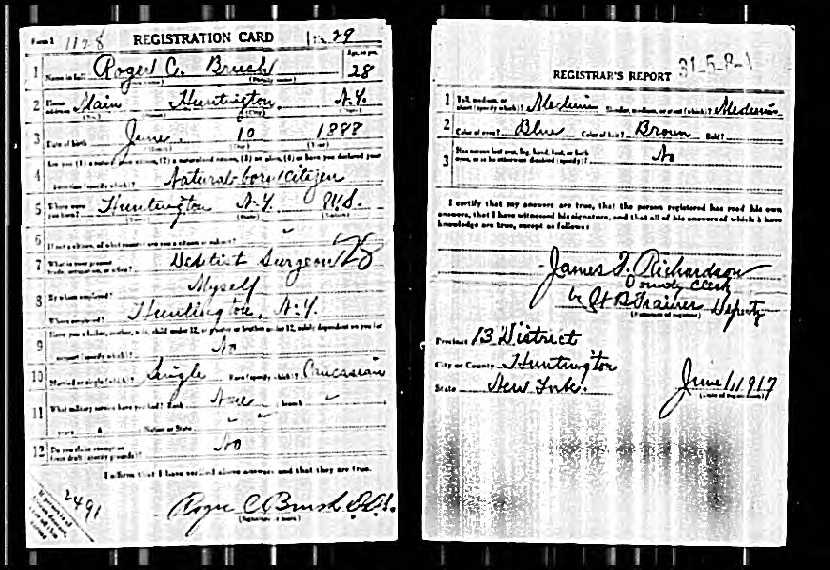 Form 1 1128 REGISTRATION CARD No. 29
1 Name in full Roger C. Brush Age, in yrs. 28
(Given name) (Family name)
2 Home address Main Huntington N.Y.
(No.) (Street) (City) (State)
3 Date of birth June 10 1888
(Month) (Day) (Year)
4 Are you (1) a natural-born citizen, (2) a naturalized citizen, (3) an alien, (4) or have you declared your
intention (specify which)? Natural-born citizen
5 Where were you born? Huntington N.Y. U.S.
(Town) (State) (Nation)
6 If not a citizen, of what country are you a citizen or subject?
7 What is your present trade, occupation, or office? Dentist Surgeon 28
8 By whom employed? Myself
Where employed? Huntington, N.Y.
9 Have you a father, mother, wife, child under 12, or a sister or brother under 12, solely dependent on you for
support (specify which)? No
10 Married or single (which)? Single Race (specify which)? Caucasian
11 What military service have you had? Rank None ; branch
years ; Nation or State
12 Do you claim exemption from draft (specify grounds)? No
I affirm that I have verified above answers and that they are true.
2491
Roger C Brush D.D.S.
(Signature or mark)
REGISTRAR'S REPORT 31-5-8-
1 Tall, medium, or short (specify which)? Medium Slender, medium, or stout (which)? Medium
2 Color of eyes? Blue Color of hair? Brown Bald?
3 Has person lost arm, leg, hand, foot, or both eyes, or is he otherwise disabled (specify)? No
I certify that my answers are true, that the person registered has read his own
answers, that I have witnessed his signature, and that all of his answers of which I have
knowledge are true, except as follows:
James F. Richardson
County Clerk
by Deputy
(Signature of registrar)
Precinct 13 District
City or County Huntington
State New York.
June 1, 1917
(Date of registration)